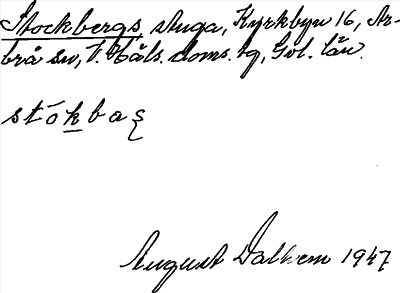 Stockbergs, stuga, Kyrkbyn 16, Ar-
brå sn, V. Häls. doms. tg, Gvl. län.
stókbaʂ
August Dalhem 1947